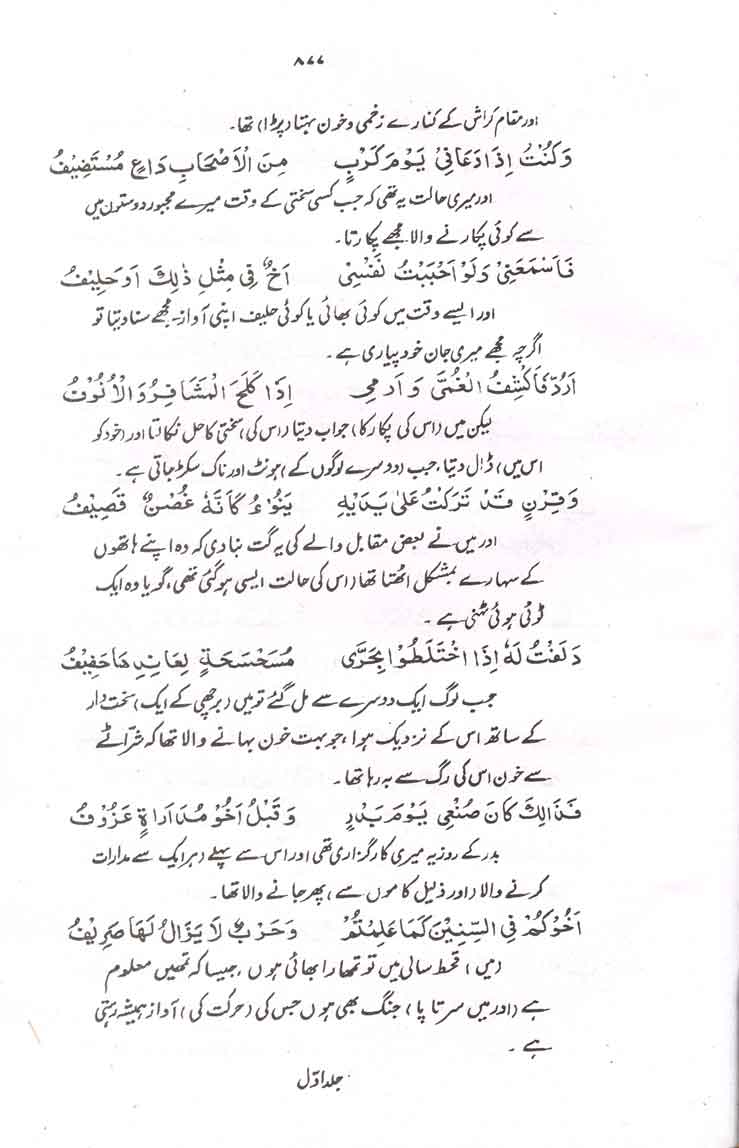 ۸۷۷
اور مقام کراش کے کنارے زخمی و خون بہتا (پڑا) تھا۔
وَكُنْتُ إِذَا دَعَانِيْ يَوْمَ كَرْبٍ مِنَ الْأَصْحَابِ دَاعٍ مُسْتَضِيْفُ
اور میری حالت یہ تھی کہ جب کسی سختی کے وقت میرے مجبور دوستوں میں
سے کوئی پکارنے والا مجھے پکارتا۔
فَاَسْمَعَنِيْ وَلَوْ اَحْبَبْتُ نَفْسِيْ اَخٌ فِيْ مِثْلِ ذٰلِكَ اَوْ حَلِيْفُ
اور ایسے وقت میں کوئی بھائی یا کوئی حلیف اپنی آواز مجھے سنا دیتا تو
اگرچہ مجھے میری جان خود پیاری ہے۔
اَرُدُّ فَاَكْشِفُ الْغُمّٰى وَاَرْمِيْ اِذَا كَلَحَ الْمَشَافِرُ وَالْاُنُوْفُ
لیکن میں (اس کی پکار کا) جواب دیتا (اس کی) سختی کا حل نکالتا اور (خود کو
اس میں) ڈال دیتا، جب (دوسرے لوگوں کے) ہونٹ اور ناک سکڑ جاتی ہے۔
وَقِرْنٍ قَدْ تَرَكْتُ عَلٰى يَدَيْهِ يَنُوْءُ كَاَنَّهٗ غُصْنٌ قَصِيْفُ
اور میں نے بعض مقابل والے کی یہ گت بنا دی کہ وہ اپنے ہاتھوں
کے سہارے بمشکل اٹھتا تھا (اس کی حالت ایسی ہو گئی تھی) گویا وہ ایک
ٹوٹی ہوئی ٹہنی ہے۔
دَلَفْتُ لَهٗ اِذَا اخْتَلَطُوْا بِحَرّٰى مُسَحْسَحَةٍ لِعَانِدِهَا حَفِيْفُ
جب لوگ ایک دوسرے سے مل گئے تو میں (برچھی کے ایک) سخت وار
کے ساتھ اس کے نزدیک ہوا، جو بہت خون بہانے والا تھا کہ شرّاٹے
سے خون اس کی رگ سے بہہ رہا تھا۔
فَذَالِكَ كَانَ صُنْعِيْ يَوْمَ بَدْرٍ وَقَبْلُ اَخُوْ مُدَارَاةٍ عَزُوْفُ
بدر کے روز یہ میری کارگزاری تھی اور اس سے پہلے (ہر ایک سے مدارات
کرنے والا (اور ذلیل کاموں سے) پھر جانے والا تھا۔
اَخُوْكُمْ فِي السِّنِيْنَ كَمَا عَلِمْتُمْ وَحَرْبٌ لَا يَزَالُ لَهَا صَرِيْفُ
(میں) قحط سالی میں تو تمہارا بھائی ہوں، جیسا کہ تمہیں معلوم
ہے (اور میں سرتاپا) جنگ بھی ہوں جس کی (حرکت کی) آواز ہمیشہ رہتی
ہے۔
جلد اوّل